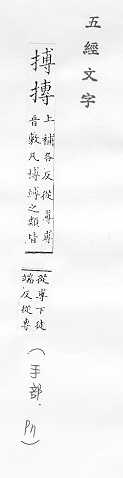 五經文字
搏摶
上補各反從尃尃
音敷凡博縛之類皆
從尃下徒
端反從專
(手部. P11)